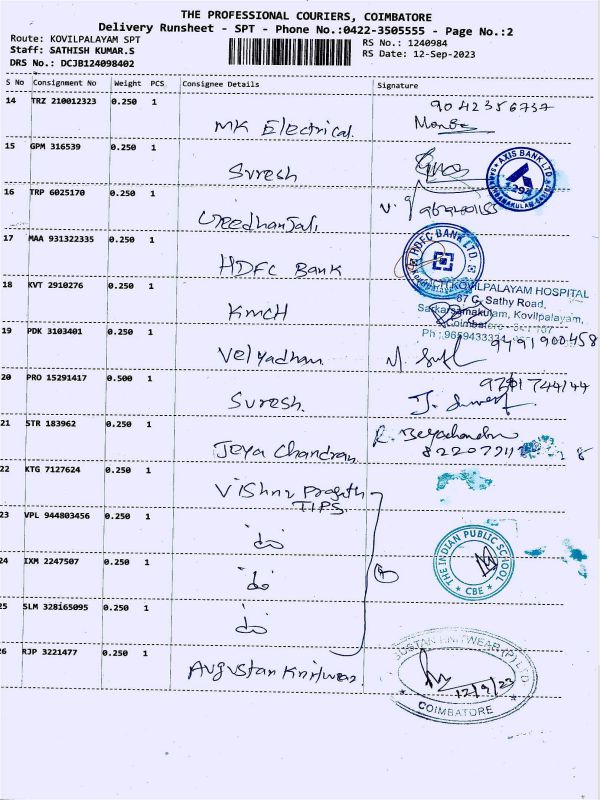 THE PROFESSIONAL COURIERS, COIMBATORE
Delivery Runsheet - SPT - Phone No.:0422-3505555 - Page No.:2
Route: KOVILPALAYAM SPT
Staff: SATHISH KUMAR.S
DRS No.: DCJB124098402
RS No.: 1240984
RS Date: 12-Sep-2023
S No Consignment No Weight PCS Consignee Details Signature
14 TRZ 210012323 0.250 1 MK Electrical. 9042356737
15 GPM 316539 0.250 1 Suresh
AXIS BANK LTD
1294
16 TRP 6025170 0.250 1
17 MAA 931322335 0.250 1 HDFC Bank
HDFC BANK LTD.
18 KVT 2910276 0.250 1 KMCH
KOVILPALAYAM HOSPITAL
67 C, Sathy Road,
Sarkarsamakulam, Kovilpalayam,
Coimbatore
19 PDK 3103401 0.250 1 Velyadhan 9791900458
20 PRO 15291417 0.500 1 Suresh.
21 STR 183962 0.250 1 Jeya Chandran
22 KTG 7127624 0.250 1 Vishnu
TIPS
23 VPL 944803456 0.250 1 do
24 IXM 2247507 0.250 1 do
THE INDIAN PUBLIC SCHOOL
CBE
25 SLM 328165095 0.250 1 do
26 RJP 3221477 0.250 1 Augustan Knitwear.
KNITWEAR (P) LTD
12/9/23
COIMBATORE